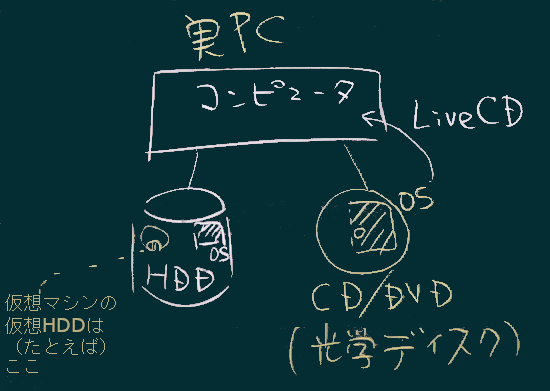 実PC
コンピュータ
LiveCD
OS
OS
HDD
CD/DVD
(光学ディスク)
仮想マシンの
仮想HDDは
（たとえば）
ここ